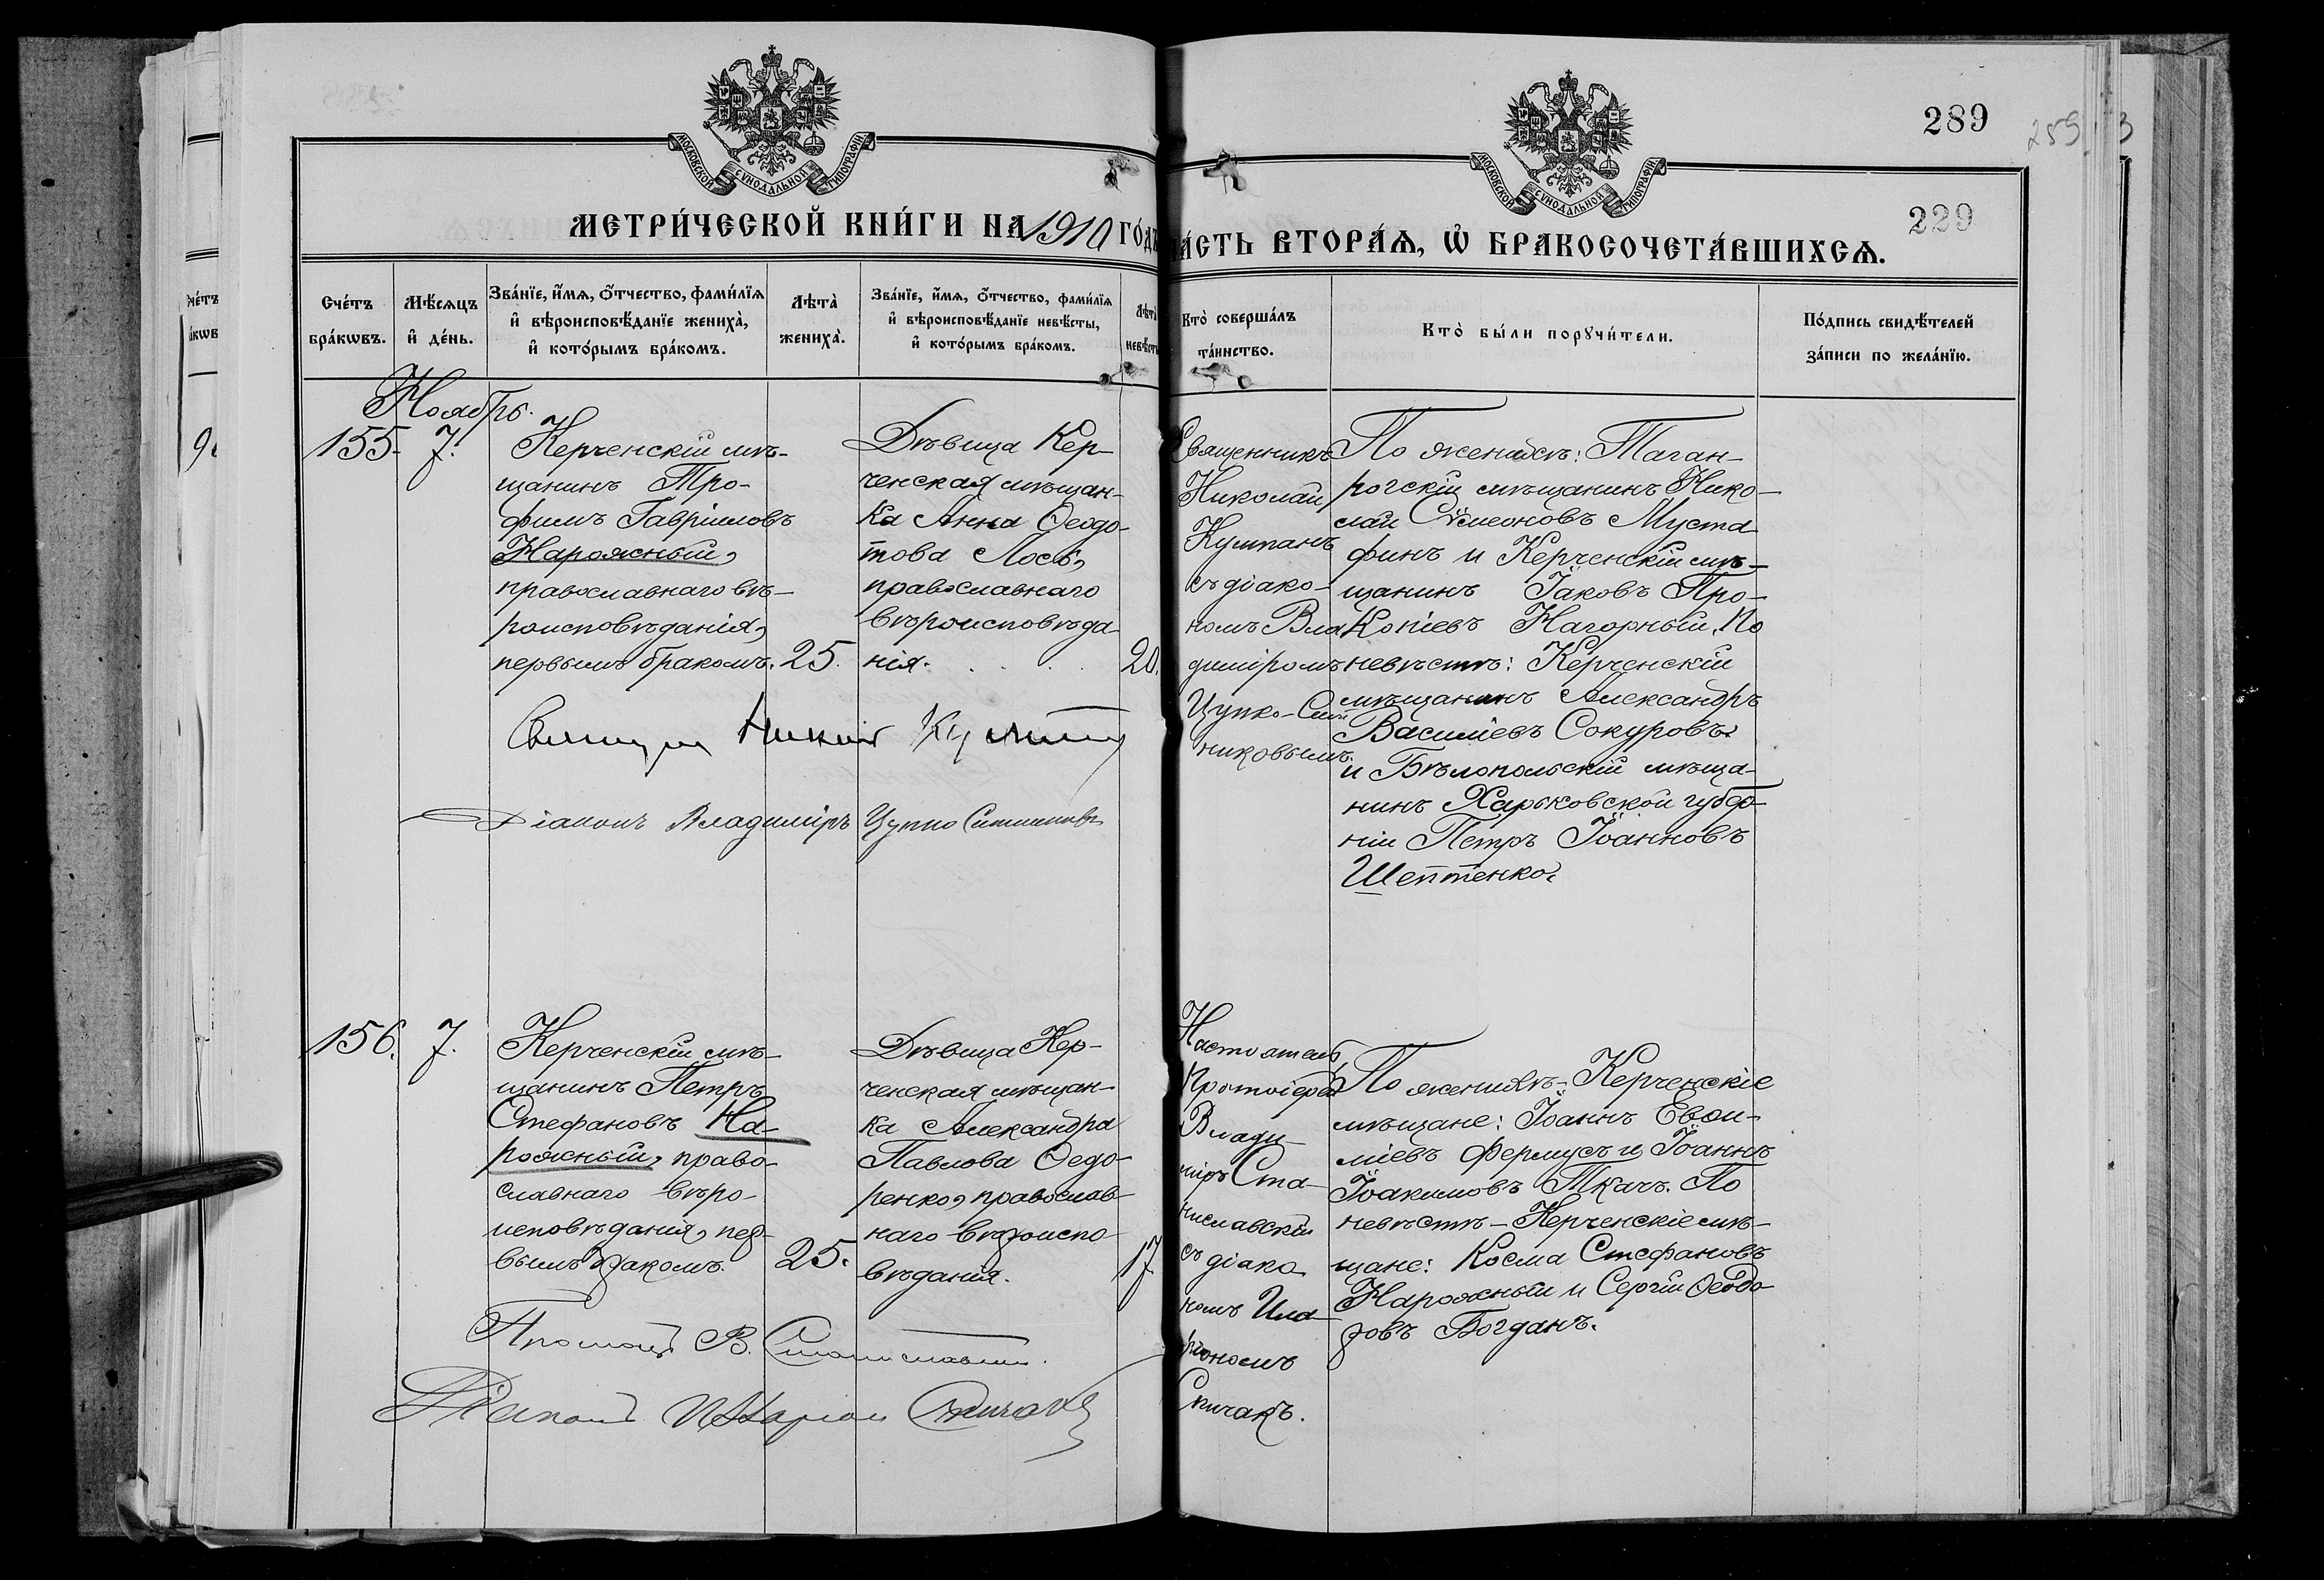 289
289
229
МОСКОВСКОЙ СѴНОДАЛЬНОЙ ТИПОГРАФІИ.
МОСКОВСКОЙ СѴНОДАЛЬНОЙ ТИПОГРАФІИ.
МЕТРИ́ЧЕСКОЙ КНИ́ГИ НА 1910 ГО́ДЪ
ЧА́СТЬ ВТОРА́Ѧ, Ѡ҆ БРАКОСОЧЕТА́ВШИХСѦ.
Сче́тъ
бра́кѡвъ.
Мѣ́сѧцъ
и҆ де́нь.
Зва́нїе, и҆́мѧ, ѻ҆́тчество, фами́лїѧ
и҆ вѣроисповѣ́данїе жениха̀,
и҆ кото́рымъ бра́комъ.
Лѣта̀
жениха̀.
Зва́нїе, и҆́мѧ, ѻ҆́тчество, фами́лїѧ
и҆ вѣроисповѣ́данїе невѣ́сты,
и҆ кото́рымъ бра́комъ.
Лѣта̀
невѣ́сты
Кто̀ соверша́лъ
та́инство.
Кто̀ бы́ли порꙋчи́тели.
По́дпись свидѣ́телей
за́писи по жела́нїю.
Ноябрь.
155. 7.
Керченскій мѣ-
щанинъ Тро-
фимъ Гавріиловъ
Нарожный,
православнаго вѣ-
роисповѣданія,
первымъ бракомъ. 25.
Дѣвица Кер-
ченская мѣщан-
ка Анна Ѳеодо-
това Лось,
православнаго
вѣроисповѣда
нія. 20.
Священникъ
Николай
Кумпанъ
съ діако-
номъ Вла
диміромъ
Цупко-Сит
никовымъ.
По женихѣ: Таган-
рогскій мѣщанинъ Нико-
лай Симеоновъ Муста
финъ и Керченскій мѣ-
щанинъ Іаковъ Про-
копіевъ Нагорный. По
невѣстѣ: Керченскій
мѣщанинъ Александръ
Василіевъ Сокуровъ
и Бѣлопольскій мѣща-
нинъ Харьковской губер-
ніи Петръ Іоанновъ
Шептенко.
Діаконъ Владиміръ Цупко Ситниковъ
156. 7.
Керченскій мѣ-
щанинъ Петръ
Стефановъ На-
рожный, право-
славнаго вѣро-
исповѣданія, пер-
вымъ бракомъ. 25.
Дѣвица Кер-
ченская мѣщан-
ка Александра
Павлова Ѳедо-
ренко, православ-
наго вѣроиспо-
вѣданія. 17
Настоятель
Протоіерей
Влади-
міръ Ста-
ниславскій
съ діако
номъ Ила-
ріономъ
Спичакъ.
По женихѣ - Керченскіе
мѣщане: Іоаннъ Евѳи-
міевъ Фермусъ и Іоаннъ
Іоакимовъ Ткачъ. По
невѣстѣ - Керченскіе мѣ-
щане: Косма Стефановъ
Нарожный и Сергій Ѳеодо
ровъ Богданъ.
В. Станиславскій.
Діаконъ Иларіонъ Спичакъ